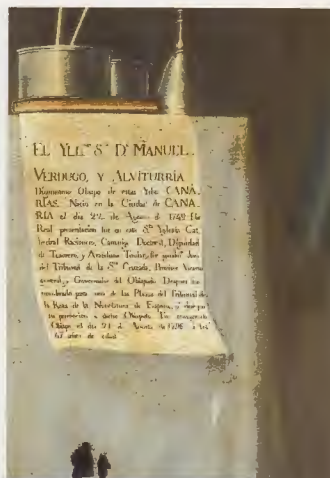 EL YLLᵐᵒ Sʳ Dⁿ MANUEL
VERDUGO, Y ALVITURRÍA
Dignísimo Obispo de estas Yslas CANA_
RIAS. Nació en la Ciudad de CANA_
RIA el día 22 de Agosto de 1749 Por
Real presentacion fue en esta Sᵗᵃ Yglesia Cat_
hedral Racionero, Canonigo Doctoral, Dignidad
de Tesorero, y Arcediano Titular, fue Juez
del Tribunal de la Sᵗᵃ Cruzada, Provisor Vicario
General, y Governador del Obispado. Despues fue
nombrado para una de las Plazas del Tribunal de
la Rota de la Nunciatura de España, y despues
su promocion a dicho Obispado. Fue consagrado
Obispo el dia 21 de Agosto de 1796 a los
47 años de edad